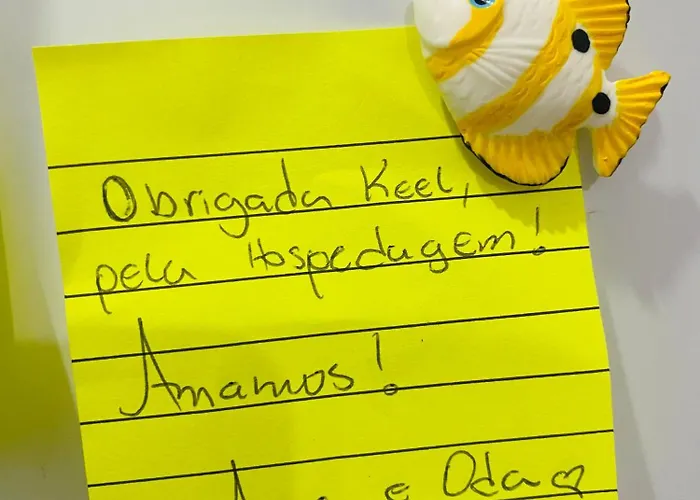 Obrigada Keel,
pela Hospedagem!
Amamos!
e Oda ♡